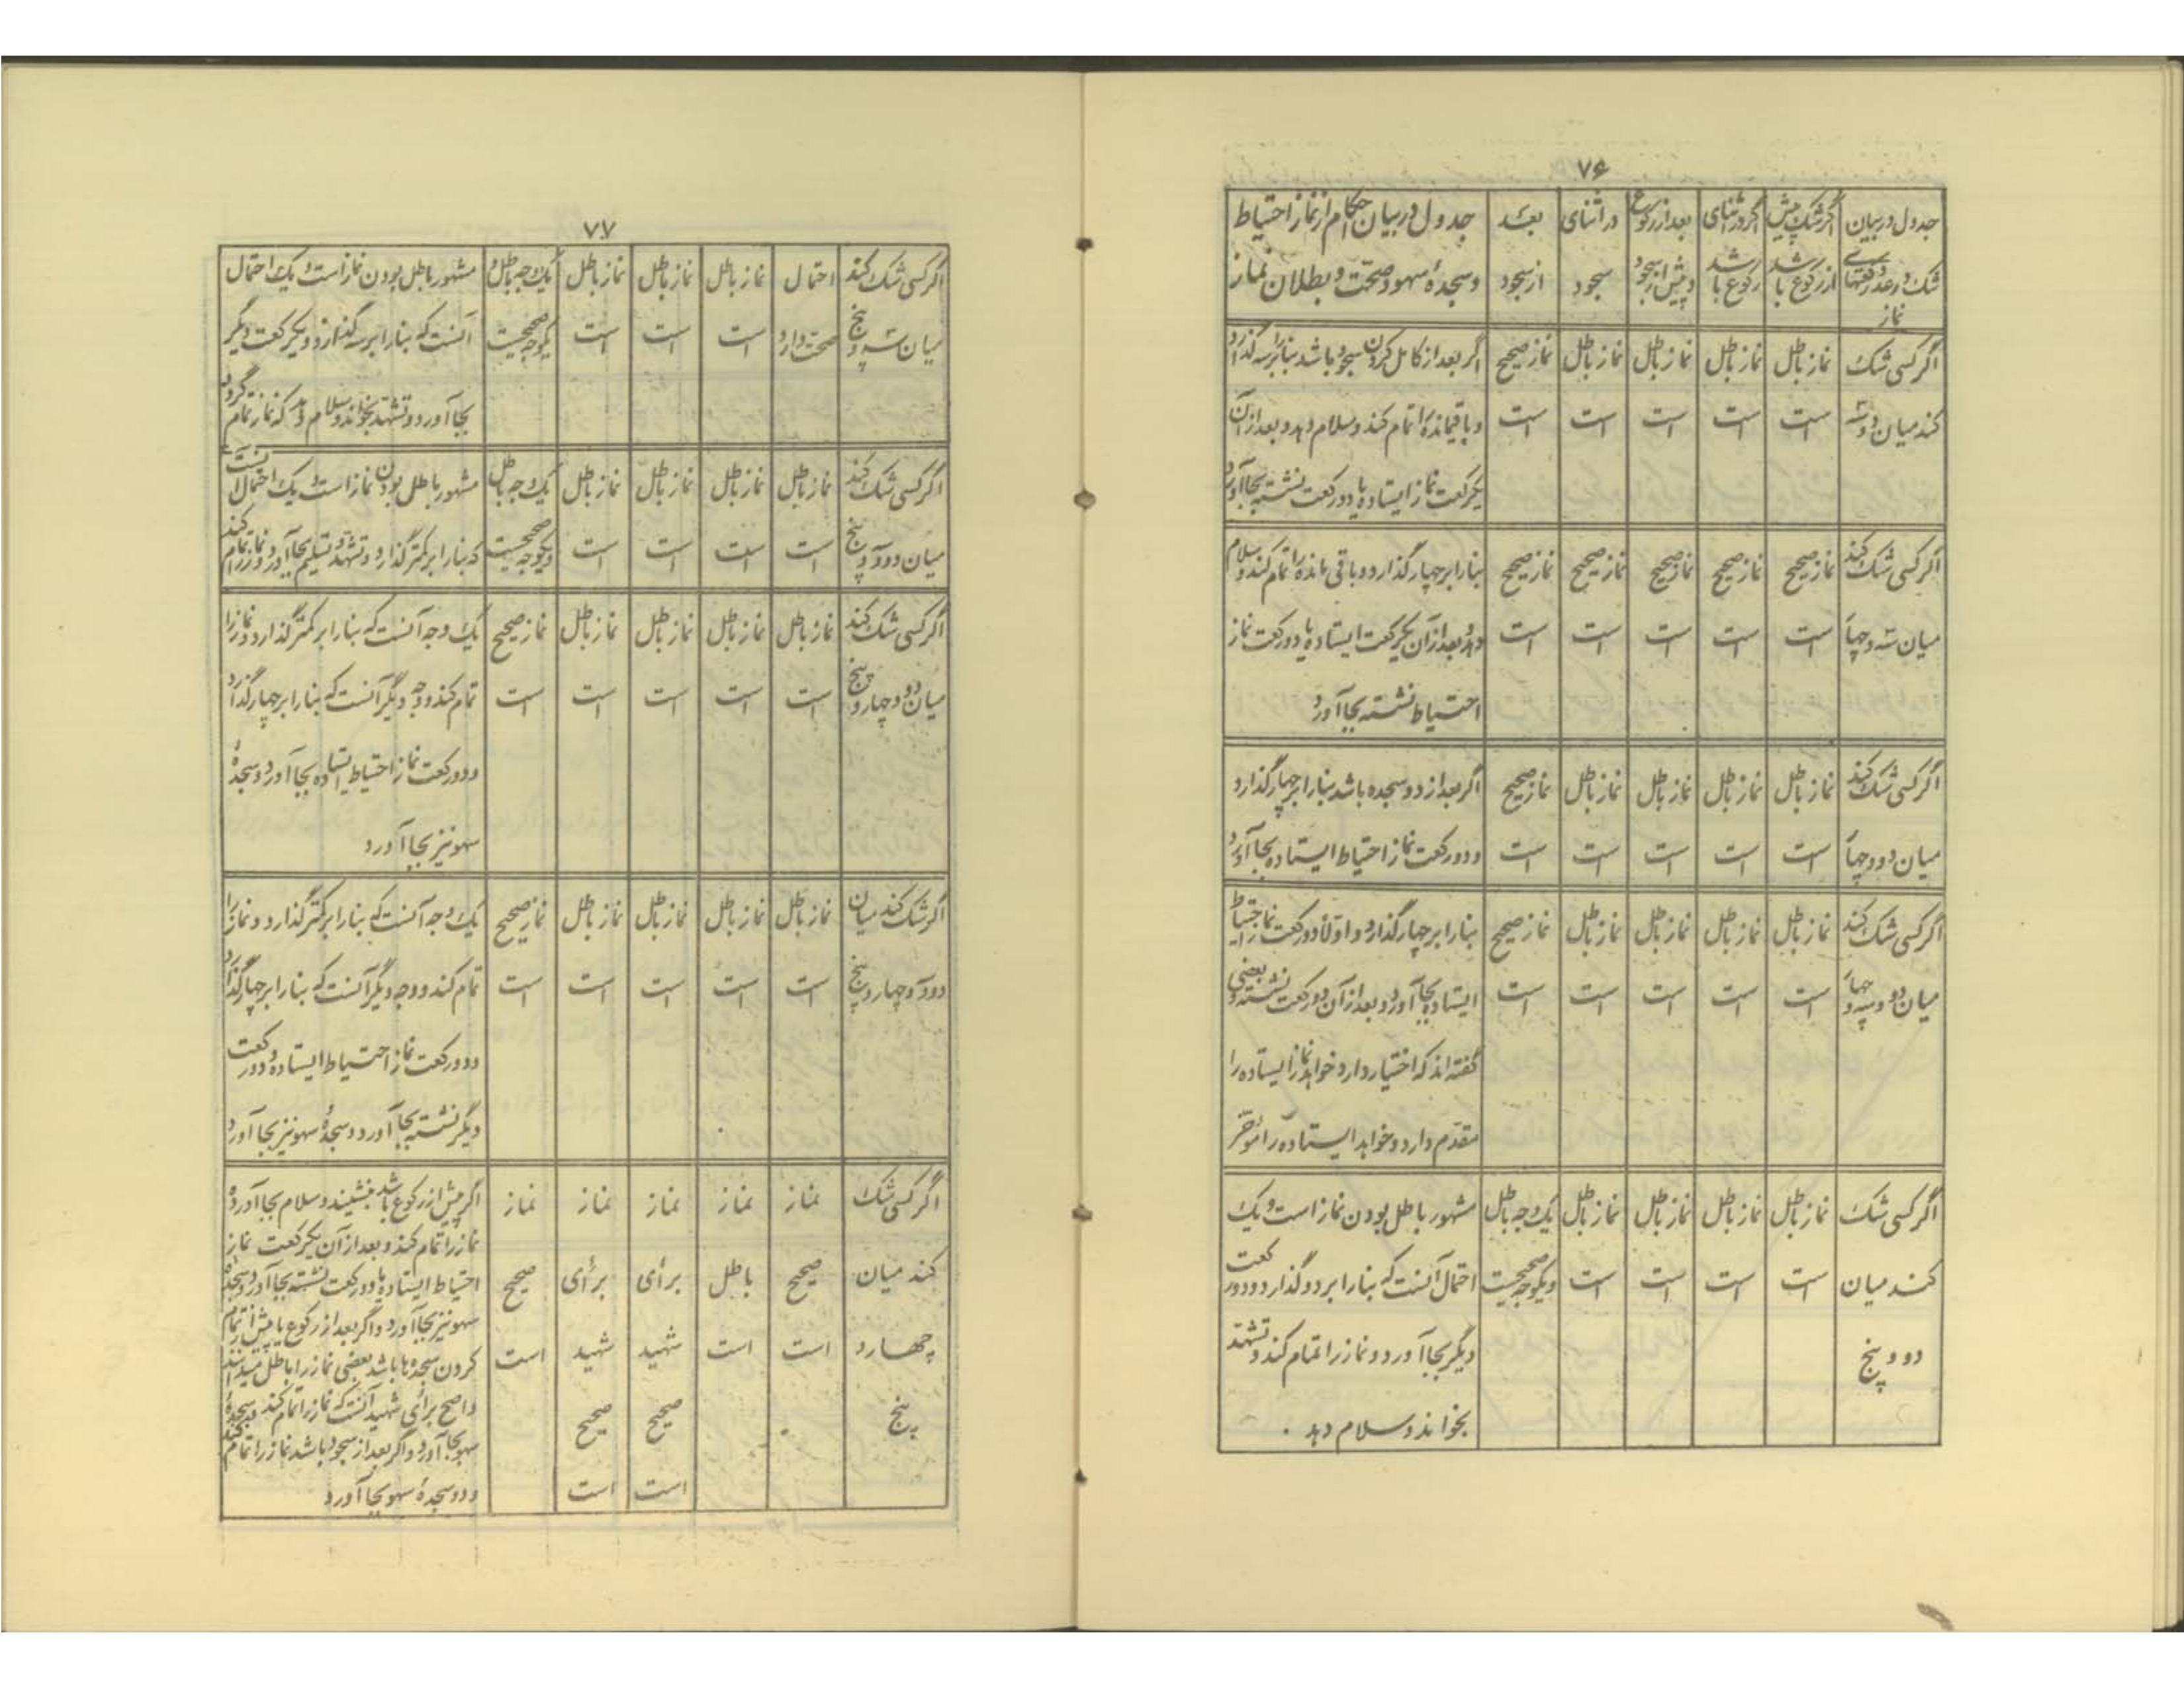 ۷۶
جدول در بیان شک در عدد رکعتهای نماز
اگر شک پیش از رکوع باشد
اگر در اثنای رکوع باشد
بعد از رکوع و پیش از سجود
در اثنای سجود
بعد از سجود
جدول در بیان احکام از نماز احتیاط
و سجدهٔ سهو و صحّت و بطلان نماز
اگر کسی شک کند میان دو و سه
نماز باطل است
نماز باطل است
نماز باطل است
نماز باطل است
نماز صحیح است
اگر بعد از کامل کردن سجود باشد بنا را بر سه گذارد
و باقیمانده را تمام کند و سلام دهد و بعد از آن
یکرکعت نماز ایستاده یا دو رکعت نشسته بجا آورد
اگر کسی شک کند میان سه و چهار
نماز صحیح است
نماز صحیح است
نماز صحیح است
نماز صحیح است
نماز صحیح است
بنا را بر چهار گذارد و باقی مانده را تمام کند و سلام
دهد و بعد از آن یکرکعت ایستاده یا دو رکعت نماز
احتیاط نشسته بجا آورد
اگر کسی شک کند میان دو و چهار
نماز باطل است
نماز باطل است
نماز باطل است
نماز باطل است
نماز صحیح است
اگر بعد از دو سجده باشد بنا را بر چهار گذارد
و دو رکعت نماز احتیاط ایستاده بجا آورد
اگر کسی شک کند میان دو و سه و چهار
نماز باطل است
نماز باطل است
نماز باطل است
نماز باطل است
نماز صحیح است
بنا را بر چهار گذارد و اولا دو رکعت نماز احتیاط را
ایستاده بجا آورد و بعد از آن دو رکعت نشسته و بعضی
گفته اند که اختیار دارد خواهد نماز ایستاده را
مقدّم دارد و خواهد ایستاده را مؤخّر
اگر کسی شک کند میان دو و پنج
نماز باطل است
نماز باطل است
نماز باطل است
نماز باطل است
یک وجه باطل و یکوجه صحیحست
مشهور باطل بودن نماز است و یک
احتمال آنست که بنا را بر دو گذارد و دو رکعت
دیگر بجا آورد و نماز را تمام کند و تشهّد
بخواند و سلام دهد .
۷۷
اگر کسی شک کند میان سه و پنج
احتمال صحت دارد
نماز باطل است
نماز باطل است
نماز باطل است
یک وجه باطل و یکوجه صحیحست
مشهور باطل بودن نماز است و یک احتمال
آنست که بنا را بر سه گذارد و یکرکعت دیگر
بجا آورد و تشهّد بخواند و سلام دهد که نماز تمام گردد
اگر کسی شک کند میان دو و سه و پنج
نماز باطل است
نماز باطل است
نماز باطل است
نماز باطل است
یک وجه باطل و یکوجه صحیحست
مشهور باطل بودن نماز است و یک احتمال آنست
که بنا را بر کمتر گذارد و تشهّد و تسلیم بجا آورد و نماز را تمام کند
اگر کسی شک کند میان دو و چهار و پنج
نماز باطل است
نماز باطل است
نماز باطل است
نماز باطل است
نماز صحیح است
یک وجه آنست که بنا را بر کمتر گذارد و نماز را
تمام کند و وجه دیگر آنست که بنا را بر چهار گذارد
و دو رکعت نماز احتیاط ایستاده بجا آورد و دو سجدهٔ
سهو نیز بجا آورد
اگر شک کند میان دو و سه و چهار و پنج
نماز باطل است
نماز باطل است
نماز باطل است
نماز باطل است
نماز صحیح است
یک وجه آنست که بنا را بر کمتر گذارد و نماز را
تمام کند و وجه دیگر آنست که بنا را بر چهار گذارد
و دو رکعت نماز احتیاط ایستاده و دو رکعت
دیگر نشسته بجا آورد و دو سجدهٔ سهو نیز بجا آورد
اگر کسی شک کند میان چهار و پنج
نماز صحیح است
نماز باطل است
نماز برأی شهید صحیح است
نماز برأی شهید صحیح است
نماز صحیح است
اگر پیش از رکوع باشد بنشیند و سلام بجا آورد و
نماز را تمام کند و بعد از آن یکرکعت نماز
احتیاط ایستاده یا دو رکعت نشسته بجا آورد و سجدهٔ
سهو نیز بجا آورد و اگر بعد از رکوع یا پیش از تمام
کردن سجده ها باشد بعضی نماز را باطل میدانند
و اصح برأی شهید آنست که نماز را تمام کند و سجدهٔ
سهو بجا آورد و اگر بعد از سجود باشد نماز را تمام کند
و دو سجدهٔ سهو بجا آورد